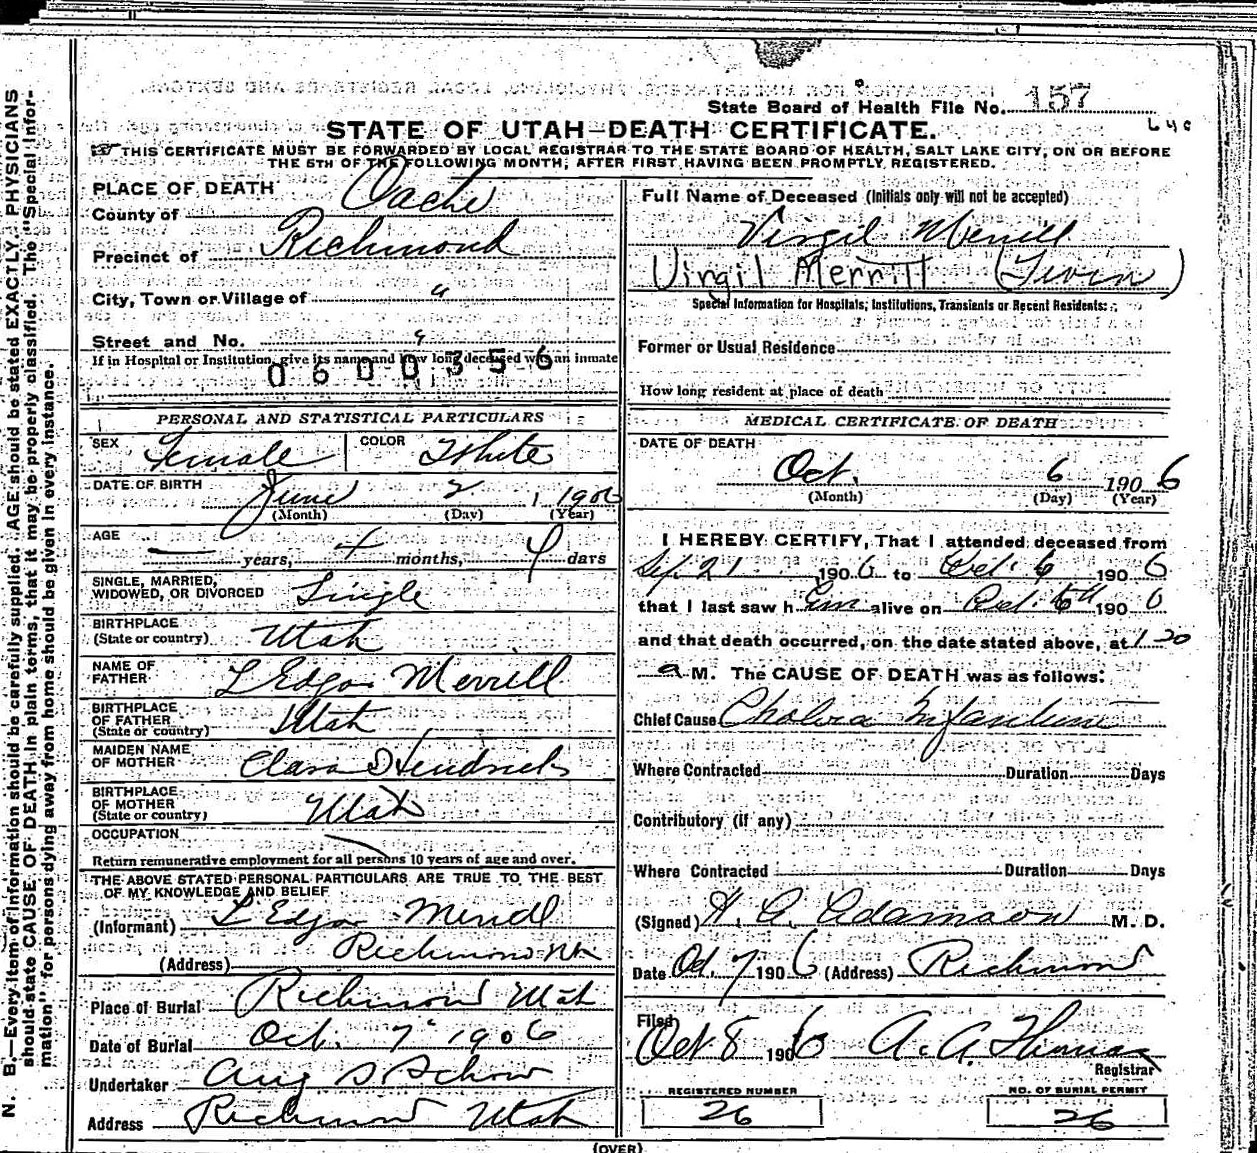 State Board of Health File No. 157
STATE OF UTAH—DEATH CERTIFICATE.
THIS CERTIFICATE MUST BE FORWARDED BY LOCAL REGISTRAR TO THE STATE BOARD OF HEALTH, SALT LAKE CITY, ON OR BEFORE
THE 5TH OF THE FOLLOWING MONTH, AFTER FIRST HAVING BEEN PROMPTLY REGISTERED.
N. B.—Every item of information should be carefully supplied. AGE should be stated EXACTLY. PHYSICIANS
should state CAUSE OF DEATH in plain terms, that it may be properly classified. The "Special Infor-
mation" for persons dying away from home should be given in every instance.
PLACE OF DEATH
County of Cache
Precinct of Richmond
City, Town or Village of "
Street and No. "
If in Hospital or Institution, give its name and how long deceased was an inmate
0600356
PERSONAL AND STATISTICAL PARTICULARS
SEX Female COLOR White
DATE OF BIRTH June 2 1906
(Month) (Day) (Year)
AGE — years, 4 months, 4 days
SINGLE, MARRIED,
WIDOWED, OR DIVORCED Single
BIRTHPLACE
(State or country) Utah
NAME OF
FATHER L Edgar Merrill
BIRTHPLACE
OF FATHER
(State or country) Utah
MAIDEN NAME
OF MOTHER Clara D Hendricks
BIRTHPLACE
OF MOTHER
(State or country) Utah
OCCUPATION
Return remunerative employment for all persons 10 years of age and over.
THE ABOVE STATED PERSONAL PARTICULARS ARE TRUE TO THE BEST
OF MY KNOWLEDGE AND BELIEF
(Informant) L Edgar Merrill
(Address) Richmond Ut
Place of Burial Richmond Utah
Date of Burial Oct. 7 1906
Undertaker Aug S Schow
Address Richmond Utah
Full Name of Deceased (Initials only will not be accepted)
Virgil Merrill
Virgil Merrill (Twin)
Special Information for Hospitals, Institutions, Transients or Recent Residents:
Former or Usual Residence
How long resident at place of death
MEDICAL CERTIFICATE OF DEATH
DATE OF DEATH
Oct. 6 1906
(Month) (Day) (Year)
I HEREBY CERTIFY, That I attended deceased from
Sep. 21 1906 to Oct. 6 1906
that I last saw h im alive on Oct. 6th 1906
and that death occurred, on the date stated above, at 1.20
a M. The CAUSE OF DEATH was as follows:
Chief Cause Cholera Infantum
Where Contracted Duration Days
Contributory (if any)
Where Contracted Duration Days
(Signed) H. G. Adamson M. D.
Date Oct. 7 1906 (Address) Richmond
Filed
Oct 8 1906 A. A. Thomas
Registrar
REGISTERED NUMBER NO. OF BURIAL PERMIT
26 26
(OVER)